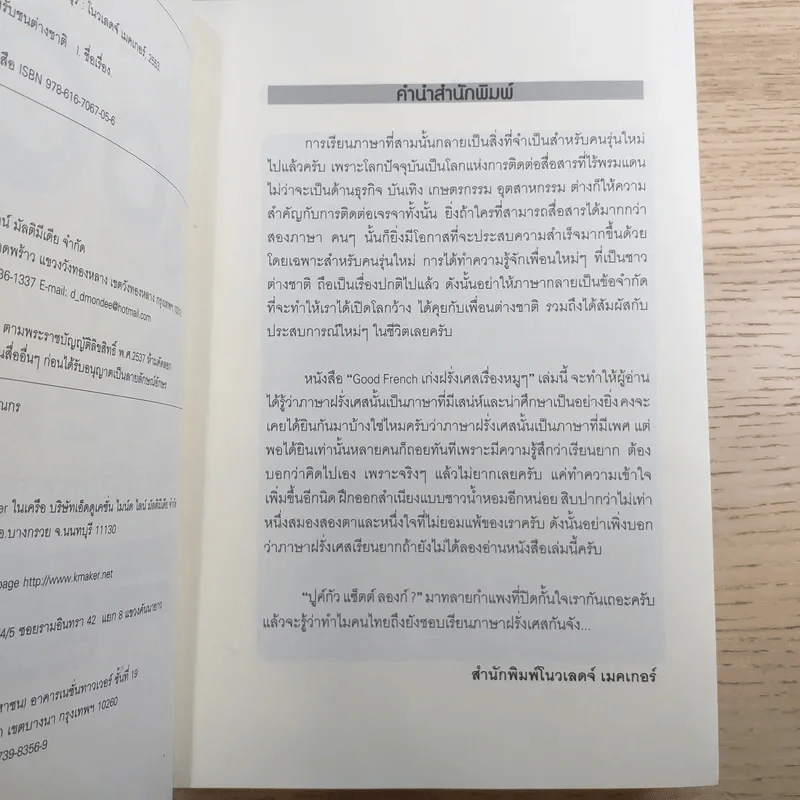 : โนวเลดจ์ เมคเกอร์, 2553.
รับชนต่างชาติ I. ชื่อเรื่อง.
ISBN 978-616-7067-05-6
มัลติมีเดีย จำกัด
แขวงวังทองหลาง เขตวังทองหลาง กรุงเทพฯ
36-1337 E-mail: d_dmondee@hotmail.com
ตามพระราชบัญญัติลิขสิทธิ์ พ.ศ.2537 ห้ามคัดลอก
สื่ออื่นๆ ก่อนได้รับอนุญาตเป็นลายลักษณ์อักษร
ในเครือ บริษัทเอ็ดดูเคชั่น ไมน์ด ไลน์ มัลติมีเดีย จำกัด
อ.บางกรวย จ.นนทบุรี 11130
page http://www.kmaker.net
4/5 ซอยรามอินทรา 42 แยก 8 แขวงคันนายาว
อาคารเนชั่นทาวเวอร์ ชั้นที่ 19
เขตบางนา กรุงเทพฯ 10260
739-8356-9
คำนำสำนักพิมพ์
การเรียนภาษาที่สามนั้นกลายเป็นสิ่งที่จำเป็นสำหรับคนรุ่นใหม่
ไปแล้วครับ เพราะโลกปัจจุบันเป็นโลกแห่งการติดต่อสื่อสารที่ไร้พรมแดน
ไม่ว่าจะเป็นด้านธุรกิจ บันเทิง เกษตรกรรม อุตสาหกรรม ต่างก็ให้ความ
สำคัญกับการติดต่อเจรจาทั้งนั้น ยิ่งถ้าใครที่สามารถสื่อสารได้มากกว่า
สองภาษา คนๆ นั้นก็ยิ่งมีโอกาสที่จะประสบความสำเร็จมากขึ้นด้วย
โดยเฉพาะสำหรับคนรุ่นใหม่ การได้ทำความรู้จักเพื่อนใหม่ๆ ที่เป็นชาว
ต่างชาติ ถือเป็นเรื่องปกติไปแล้ว ดังนั้นอย่าให้ภาษากลายเป็นข้อจำกัด
ที่จะทำให้เราได้เปิดโลกกว้าง ได้คุยกับเพื่อนต่างชาติ รวมถึงได้สัมผัสกับ
ประสบการณ์ใหม่ๆ ในชีวิตเลยครับ
หนังสือ "Good French เก่งฝรั่งเศสเรื่องหมูๆ" เล่มนี้ จะทำให้ผู้อ่าน
ได้รู้ว่าภาษาฝรั่งเศสนั้นเป็นภาษาที่มีเสน่ห์และน่าศึกษาเป็นอย่างยิ่ง คงจะ
เคยได้ยินกันมาบ้างใช่ไหมครับว่าภาษาฝรั่งเศสนั้นเป็นภาษาที่มีเพศ แต่
พอได้ยินเท่านั้นหลายคนก็ถอยทันทีเพราะมีความรู้สึกว่าเรียนยาก ต้อง
บอกว่าคิดไปเอง เพราะจริงๆ แล้วไม่ยากเลยครับ แค่ทำความเข้าใจ
เพิ่มขึ้นอีกนิด ฝึกออกสำเนียงแบบชาวน้ำหอมอีกหน่อย สิบปากว่าไม่เท่า
หนึ่งสมองสองตาและหนึ่งใจที่ไม่ยอมแพ้ของเราครับ ดังนั้นอย่าเพิ่งบอก
ว่าภาษาฝรั่งเศสเรียนยากถ้ายังไม่ได้ลองอ่านหนังสือเล่มนี้ครับ
"ปูค์กัว แซ็ตต์ ลองก์ ?" มาทลายกำแพงที่ปิดกั้นใจเรากันเถอะครับ
แล้วจะรู้ว่าทำไมคนไทยถึงยังชอบเรียนภาษาฝรั่งเศสกันจัง...
สำนักพิมพ์โนวเลดจ์ เมคเกอร์